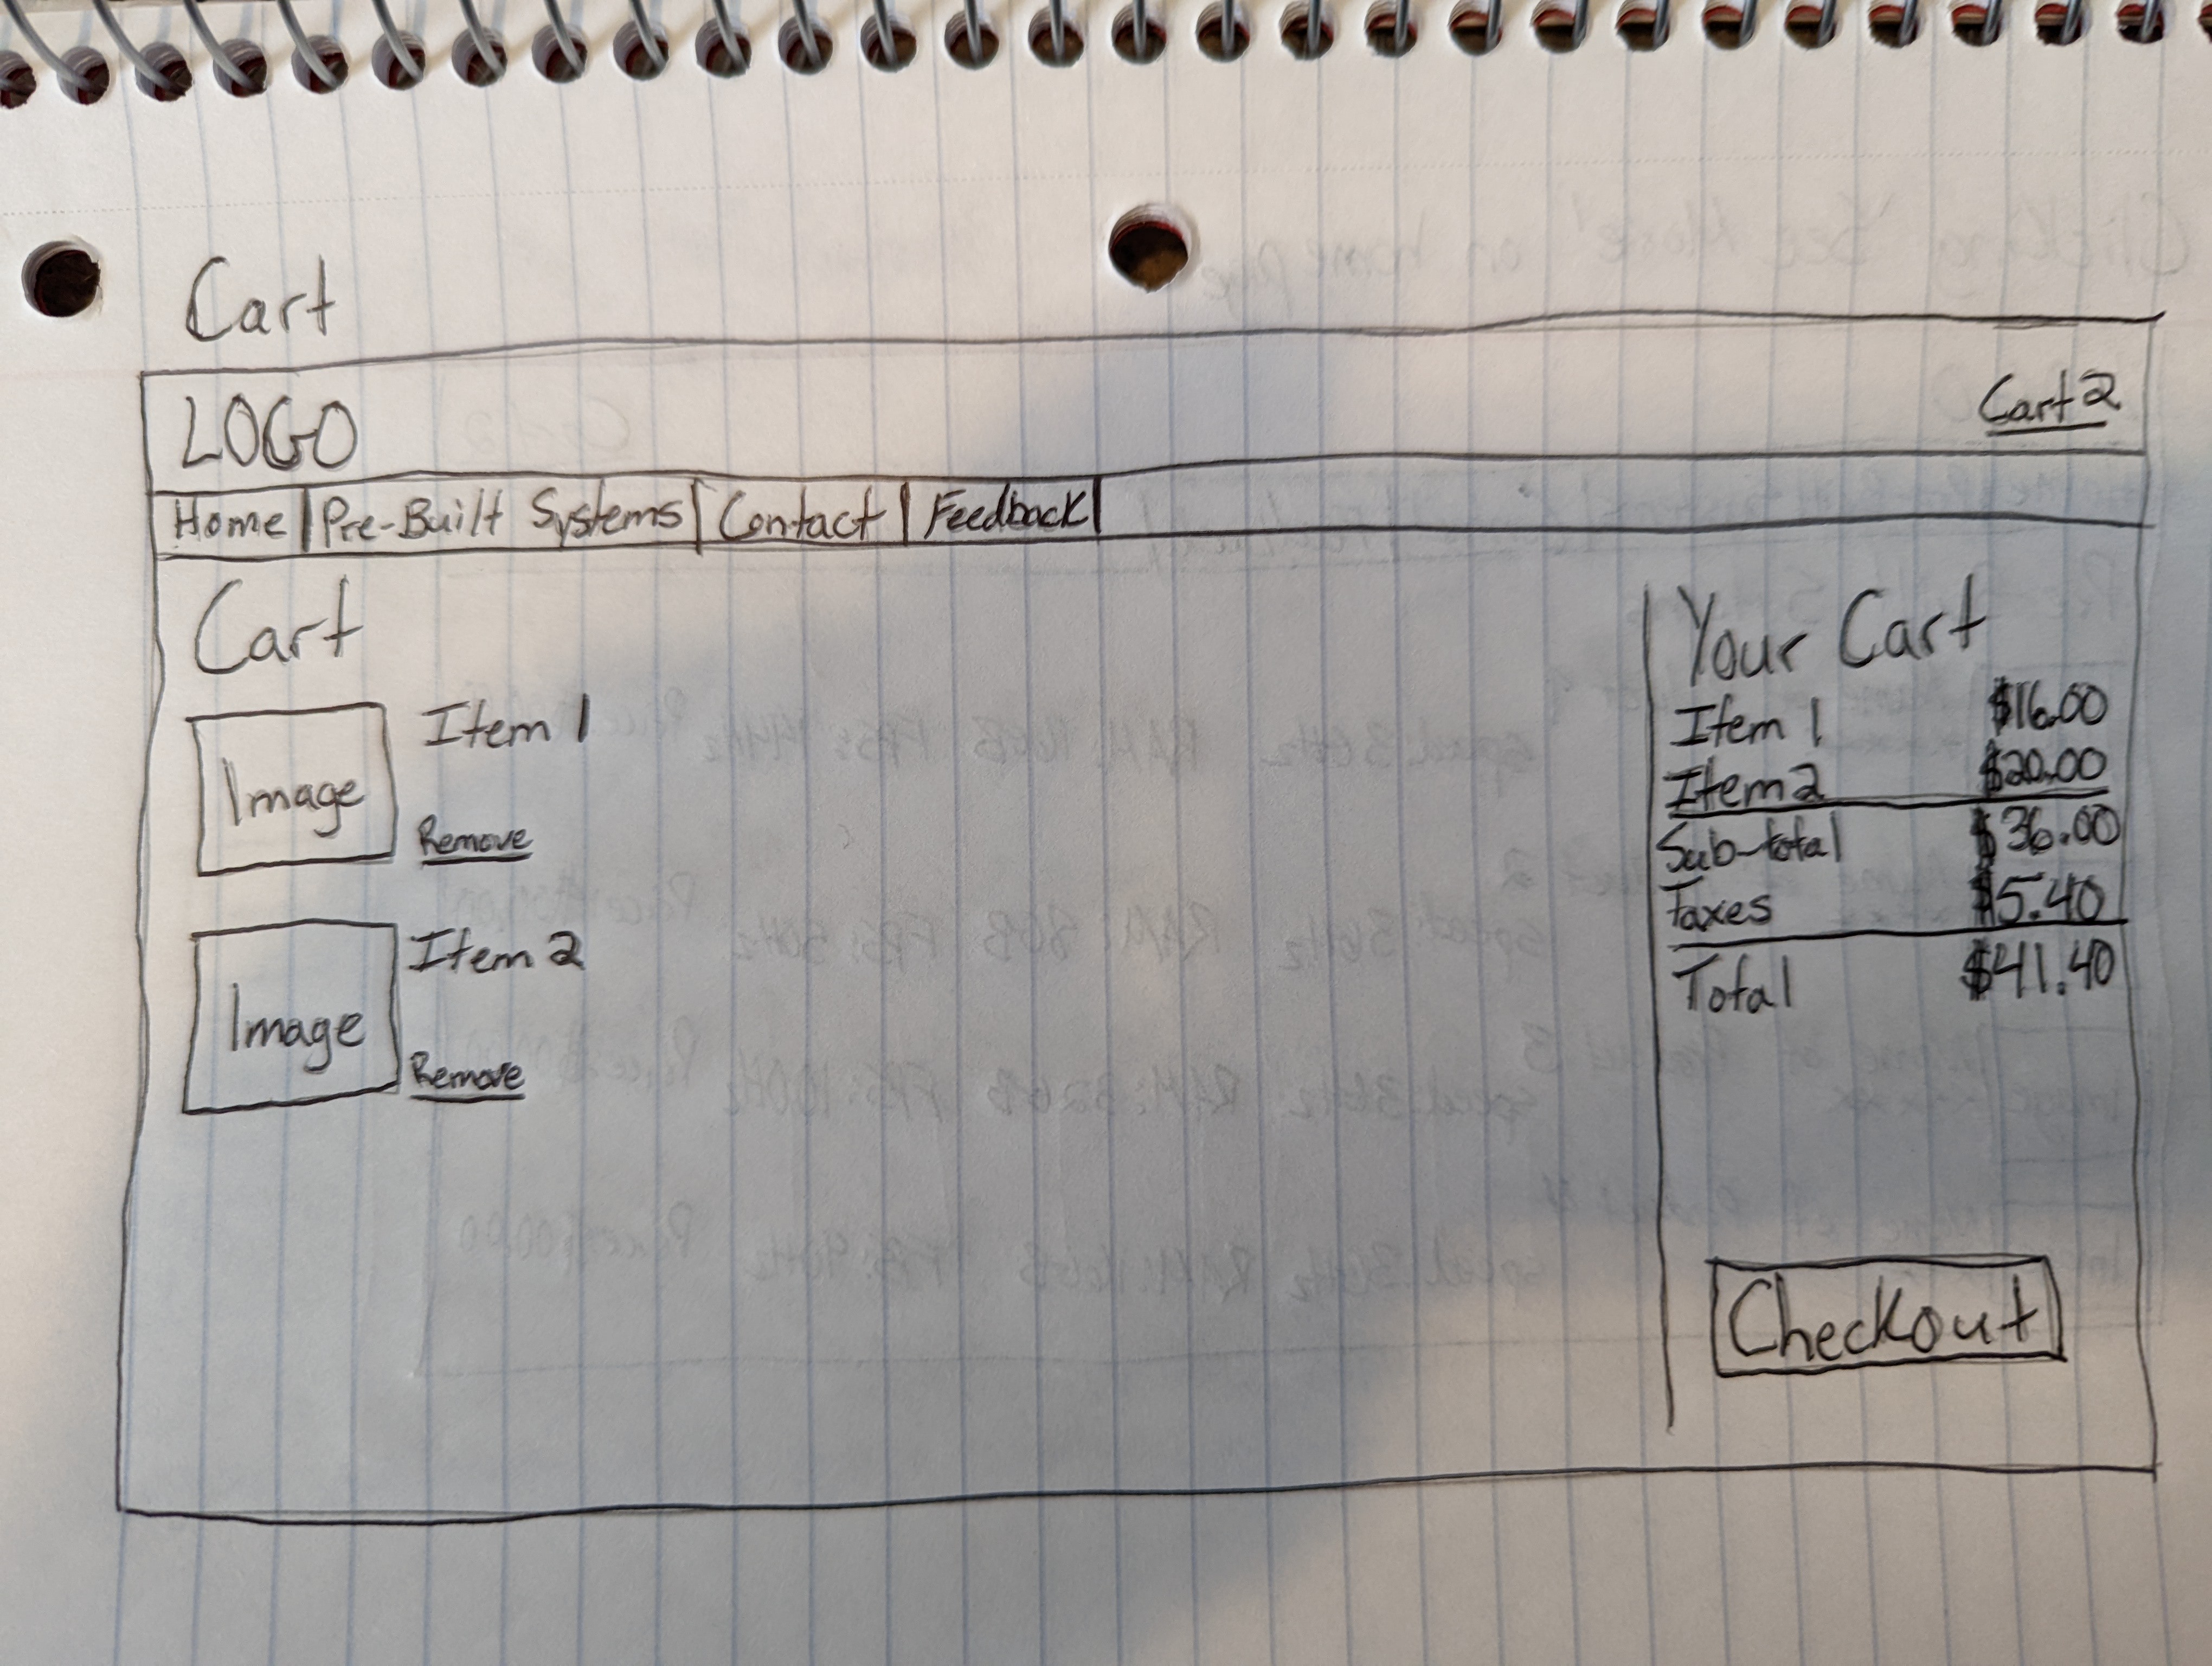 Cart
LOGO
Cart 2
Home | Pre-Built Systems | Contact | Feedback |
Cart
Image
Item 1
Remove
Image
Item 2
Remove
Your Cart
Item 1 $16.00
Item 2 $20.00
Sub-total $36.00
Taxes $5.40
Total $41.40
Checkout